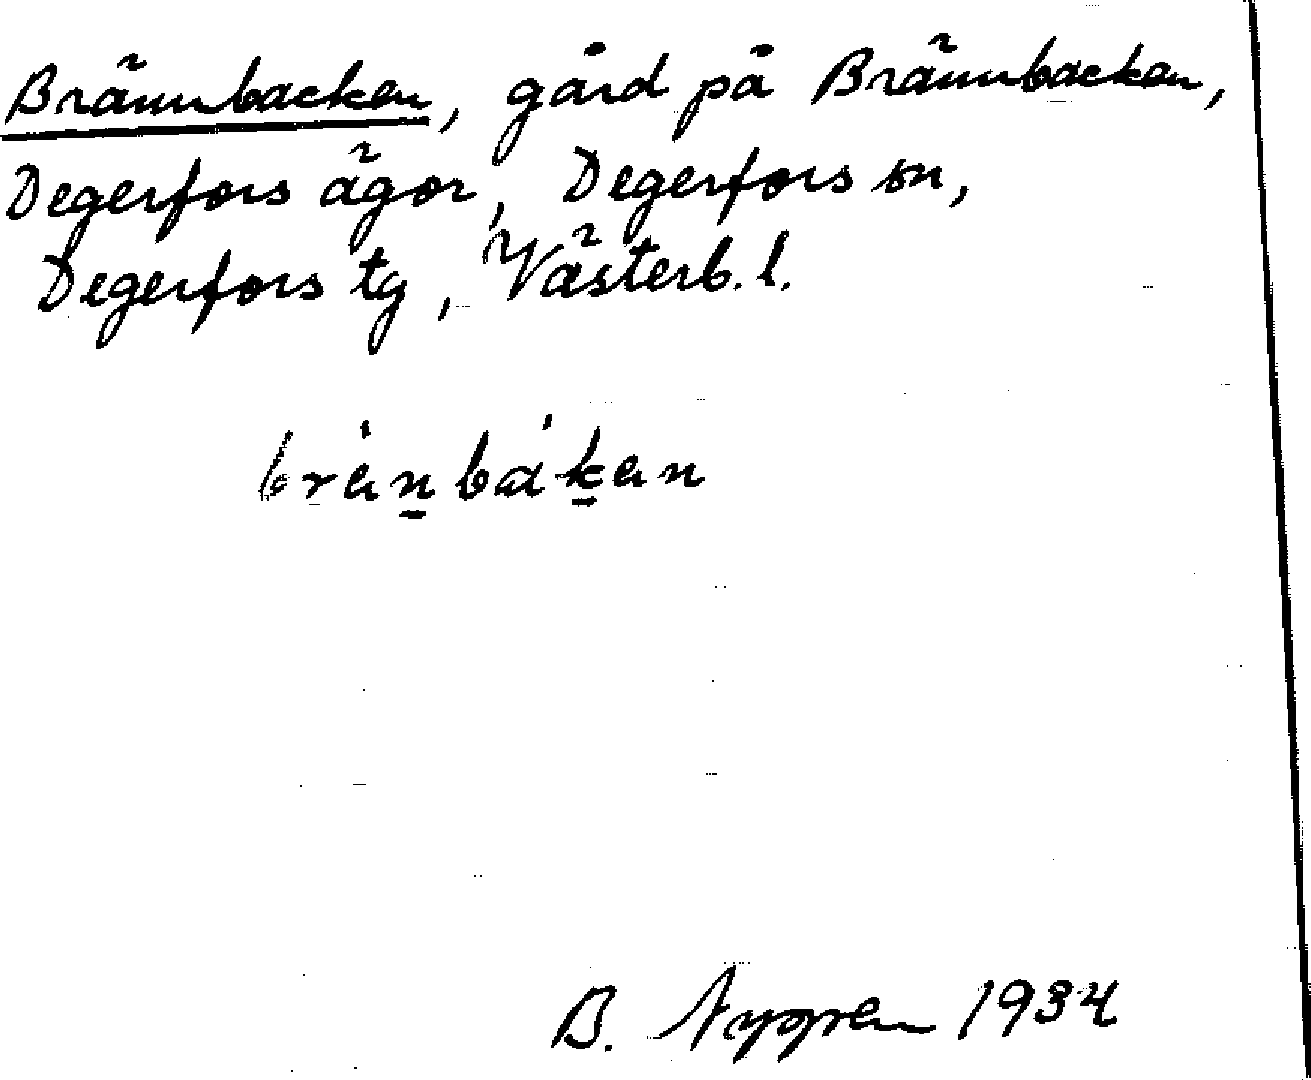 Brännbacken, gård på Brännbacken,
Degerfors ägor, Degerfors sn,
Degerfors tg, Västerb. l.
brän̲bák̲en
B. Nygren 1934